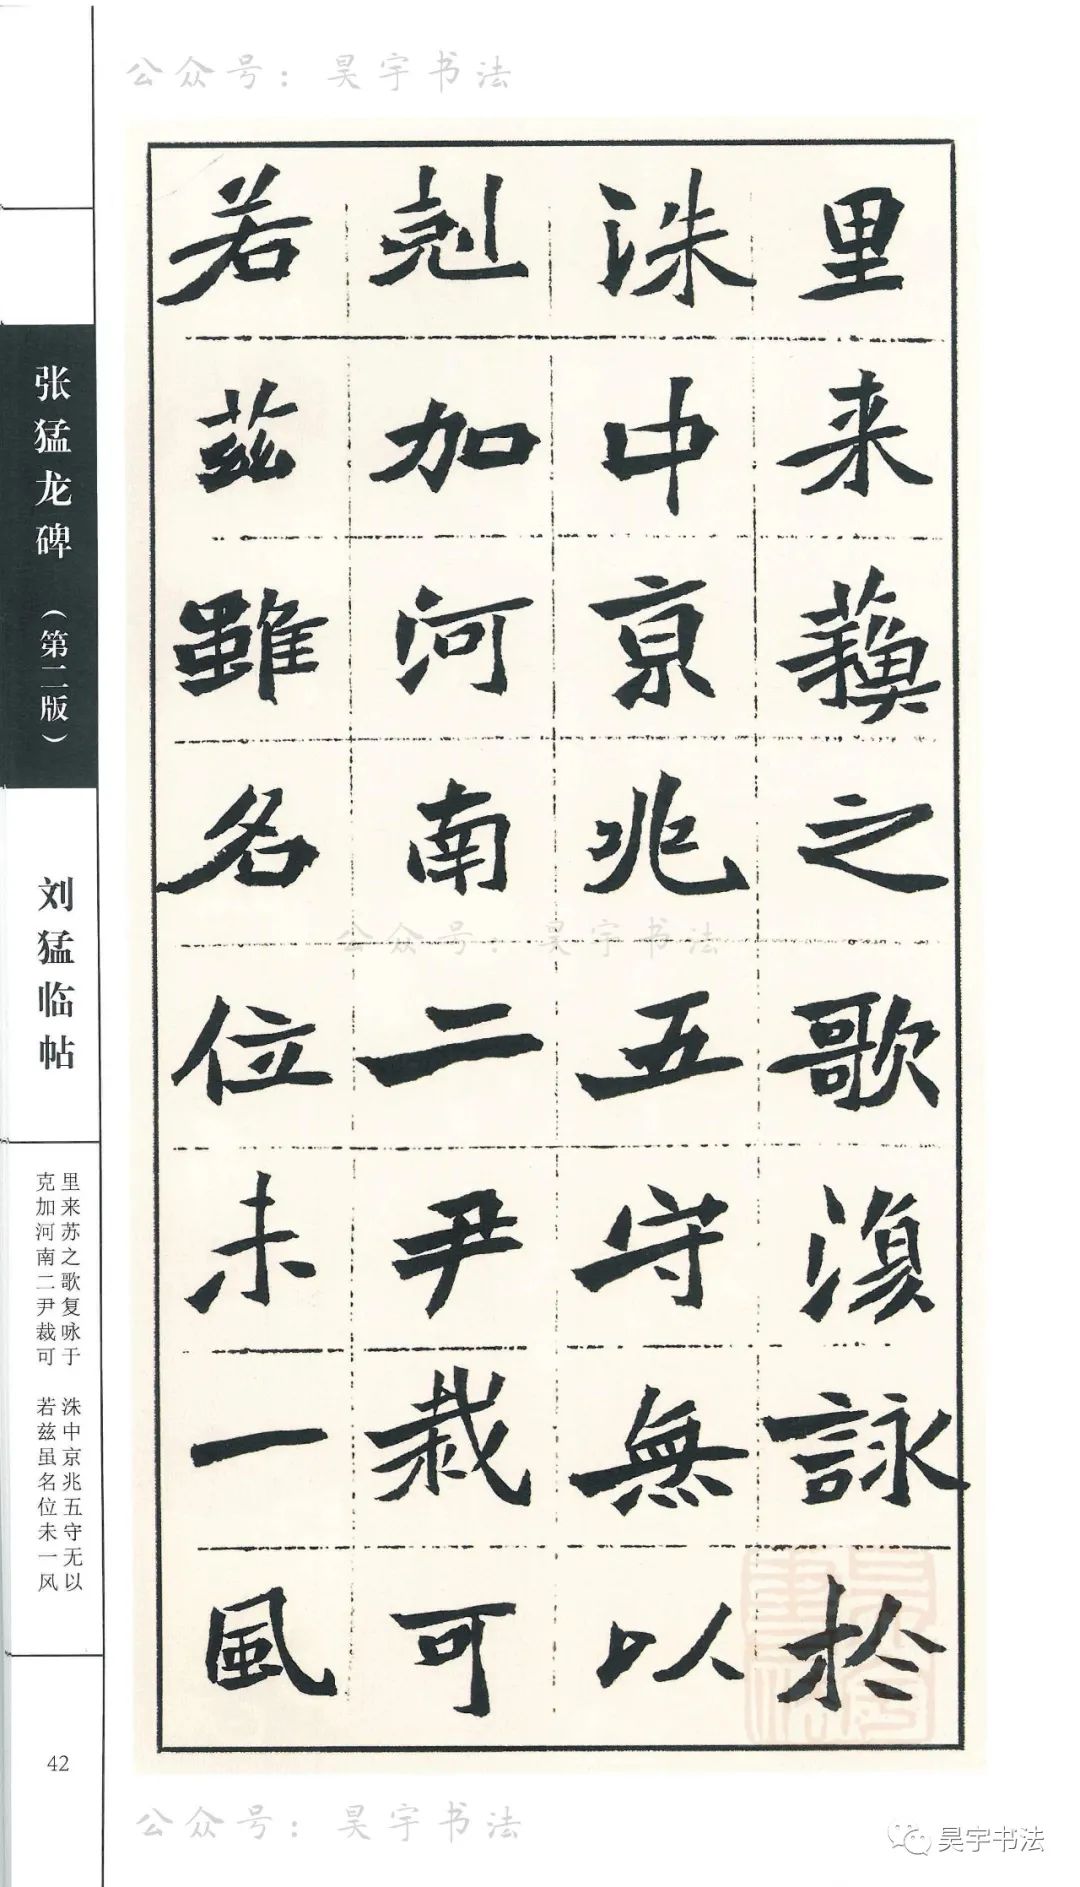 公众号：昊宇书法
里来蘓之歌澓詠於
洙中京兆五守無以
尅加河南二尹裁可
若茲雖名位未一風
公众号：昊宇书法
张猛龙碑（第二版）
刘猛临帖
里来苏之歌复咏于 洙中京兆五守无以
克加河南二尹裁可 若兹虽名位未一风
42
公众号：昊宇书法
昊宇书法